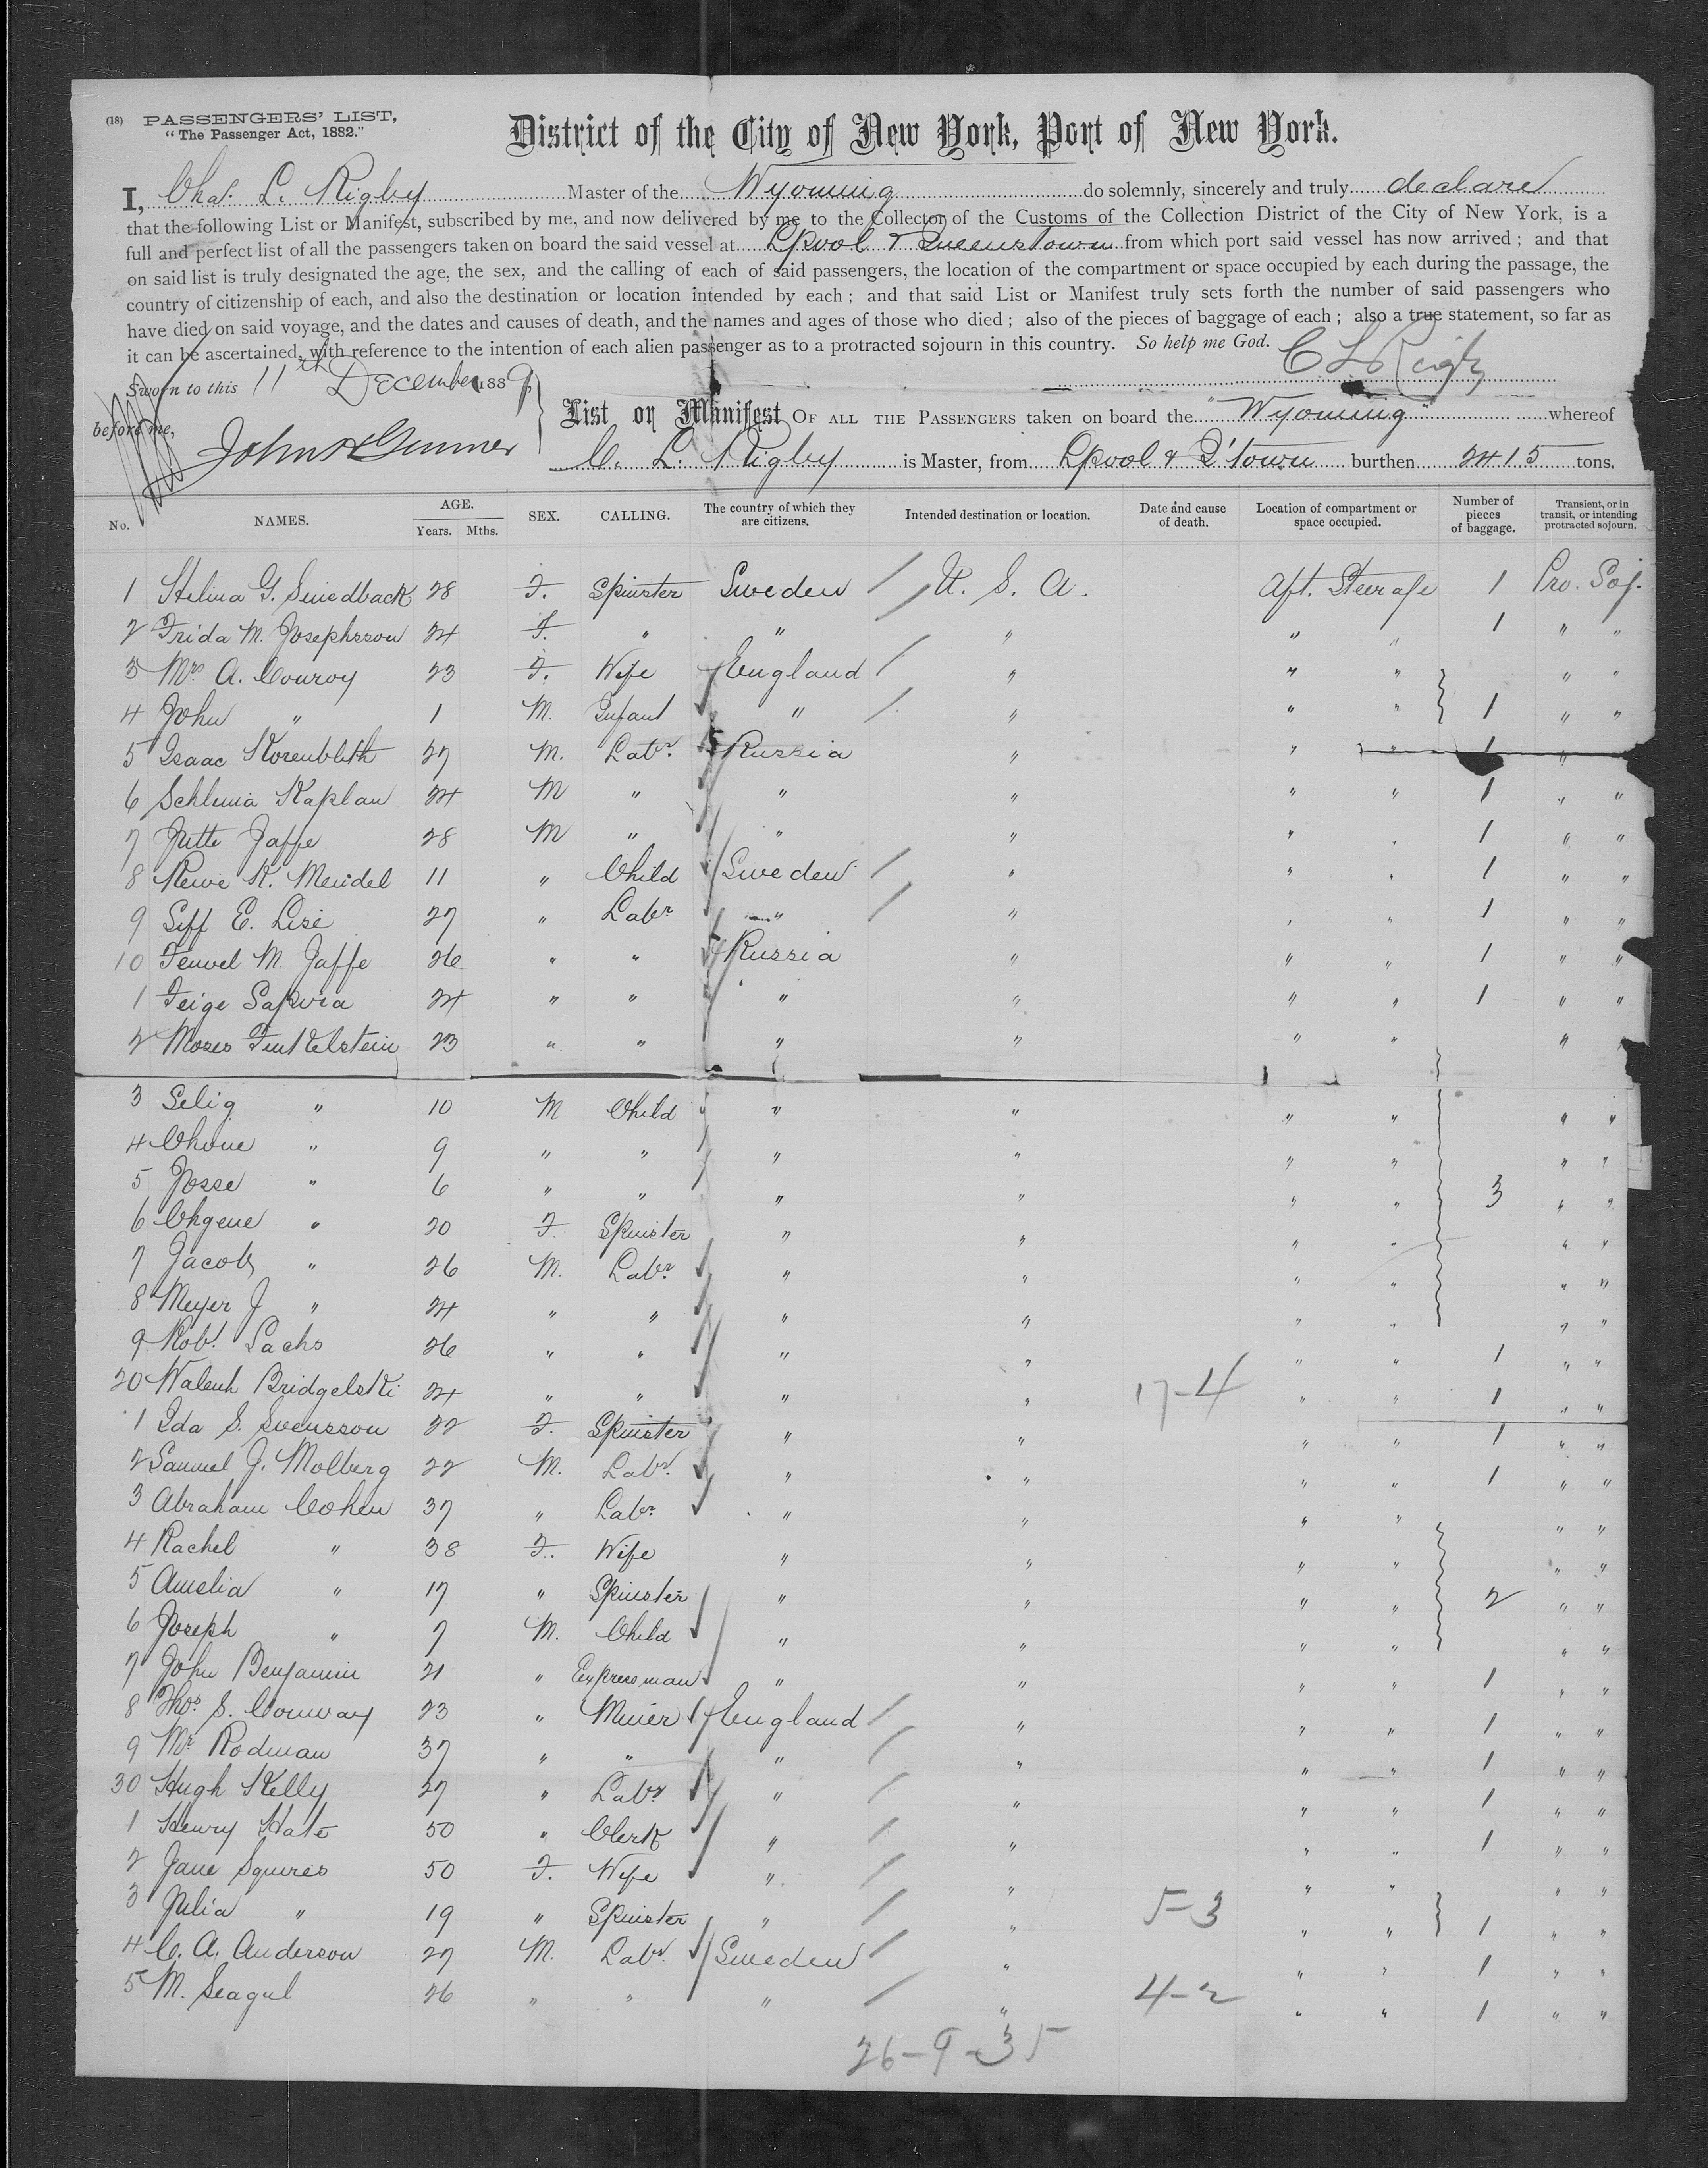 (18) PASSENGERS' LIST,
"The Passenger Act, 1882."
District of the City of New York, Port of New York.
I, Chas. L. Rigby Master of the Wyoming do solemnly, sincerely and truly declare
that the following List or Manifest, subscribed by me, and now delivered by me to the Collector of the Customs of the Collection District of the City of New York, is a
full and perfect list of all the passengers taken on board the said vessel at Lpool & Queenstown from which port said vessel has now arrived; and that
on said list is truly designated the age, the sex, and the calling of each of said passengers, the location of the compartment or space occupied by each during the passage, the
country of citizenship of each, and also the destination or location intended by each; and that said List or Manifest truly sets forth the number of said passengers who
have died on said voyage, and the dates and causes of death, and the names and ages of those who died; also of the pieces of baggage of each; also a true statement, so far as
it can be ascertained, with reference to the intention of each alien passenger as to a protracted sojourn in this country. So help me God.
C L Rigby
Sworn to this 11th December 1889
before me,
List or Manifest OF ALL THE PASSENGERS taken on board the "Wyoming" whereof
C. L. Rigby is Master, from Lpool & Q'town burthen 2415 tons.
No. NAMES. AGE. Years. Mths. SEX. CALLING. The country of which they are citizens. Intended destination or location. Date and cause of death. Location of compartment or space occupied. Number of pieces of baggage. Transient, or in transit, or intending protracted sojourn.
1 G. 28 F. Spinster Sweden U. S. A. Aft. Steerage 1 Pro. Soj.
2 Frida M. Josephsson 24 F. " " " " " 1 " "
3 Mrs A. Conroy 23 F. Wife England " " " " "
4 John " 1 M. Infant " " " " 1 " "
5 Isaac Korenblith 27 M. Labr. Russia " " " 1 "
6 Kaplan 24 M " " " " " 1 " "
7 Jaffe 28 M " " " " " 1 " "
8 K. Mendel 11 " Child Sweden " " " 1 " "
9 E. 27 " Labr " " " " 1 " "
10 M. Jaffe 26 " " Russia " " " 1 " "
1 Feige 24 " " " " " " 1 " "
2 Moses Finkelstein 23 " " " " " " " "
3 Selig " 10 M Child " " " " " "
4 Chone " 9 " " " " " " " "
5 Josse " 6 " " " " " " 3 " "
6 " 20 F. Spinster " " " " " "
7 Jacob " 26 M. Labr. " " " " " "
8 Meyer J " 24 " " " " " " " "
9 Robt. Sachs 26 " " " " " " 1 " "
20 Bridgelski 24 " " " " 17-4 " " 1 " "
1 Ida S. Svensson 22 F. Spinster " " " " 1 " "
2 Samuel J. Molberg 22 M. Labr. " " " " 1 " "
3 Abraham Cohen 37 " Labr. " " " " " "
4 Rachel " 38 F. Wife " " " " " "
5 Amelia " 17 " Spinster " " " " 2 " "
6 Joseph " 7 M. Child " " " " " "
7 John Benjamin 21 " Expressman " " " " 1 " "
8 Thos. S. Conway 23 " Miner England " " " 1 " "
9 Mr Rodman 37 " " " " " " 1 " "
30 Hugh Kelly 27 " Labr " " " " 1 " "
1 Henry 50 " Clerk " " " " 1 " "
2 Jane Squires 50 F. Wife " " " " " "
3 Julia " 19 " Spinster " " 5-3 " " 1 " "
4 C. A. Anderson 27 M. Labr. Sweden " " " 1 " "
5 M. Seagul 26 " " " " 4-2 " " 1 " "
26-9-35